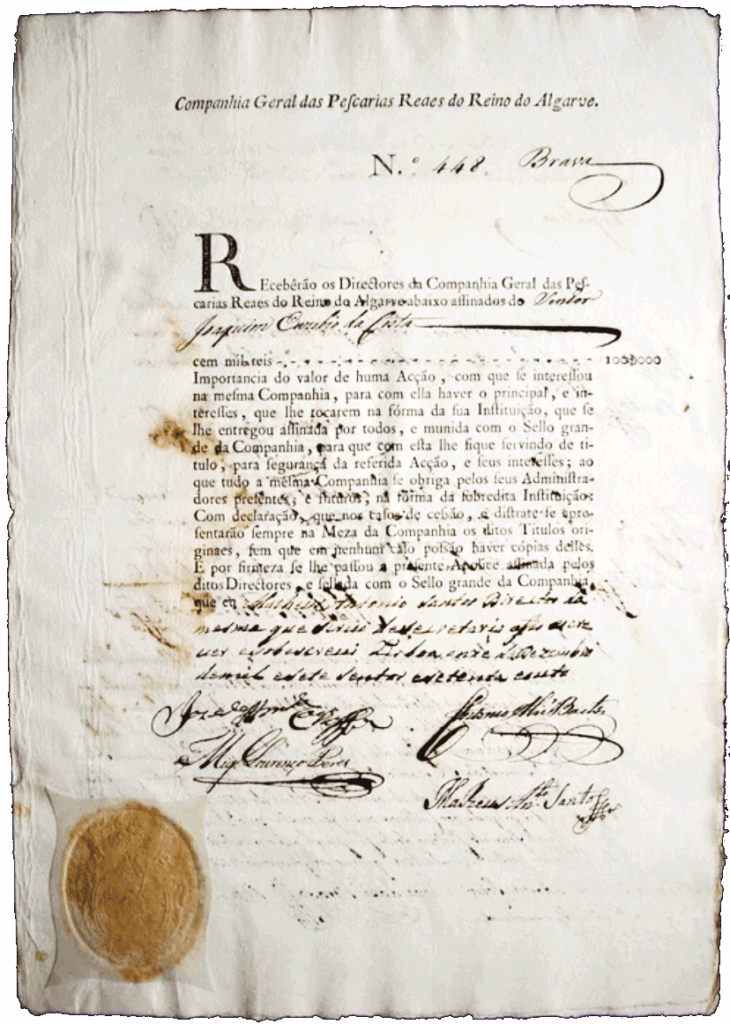 Companhia Geral das Peſcarias Reaes do Reino do Algarve.
N.º 448. Brava
REcebêrão os Directores da Companhia Geral das Peſ-
carias Reaes do Reino do Algarve abaixo aſſinados do Senhor
Joaquim Euzebio da Costa
cem mil reis - - - - - - - - - - - - - - - 100$000
Importancia do valor de huma Acção, com que ſe intereſſou
na meſma Companhia, para com ella haver o principal, e in-
tereſſes, que lhe tocarem na fórma da ſua Inſtituição, que ſe
lhe entregou aſſinada por todos, e munida com o Sello gran-
de da Companhia, para que com eſta lhe fique ſervindo de ti-
tulo, para ſegurança da referida Acção, e ſeus intereſſes; ao
que tudo a meſma Companhia ſe obriga pelos ſeus Adminiſtra-
dores preſentes, e futuros, na fórma da ſobredita Inſtituição:
Com declaração, que nos caſos de ceſsão, e diſtrate ſe apre-
ſentarão ſempre na Meza da Companhia os ditos Titulos ori-
ginaes, ſem que em nenhum caſo poſsão haver cópias deſſes.
E por firmeza ſe lhe paſſou a preſente Apolice aſſinada pelos
ditos Directores, e ſellada com o Sello grande da Companhia,
que eu Matheus Antonio Santos Director da
mesma que sirvo de secretario a fiz escre
ver e sobescrevi Lisboa onze de Dezembro
de mil e sete sentos e setenta e outo
Matheus An.to Santos